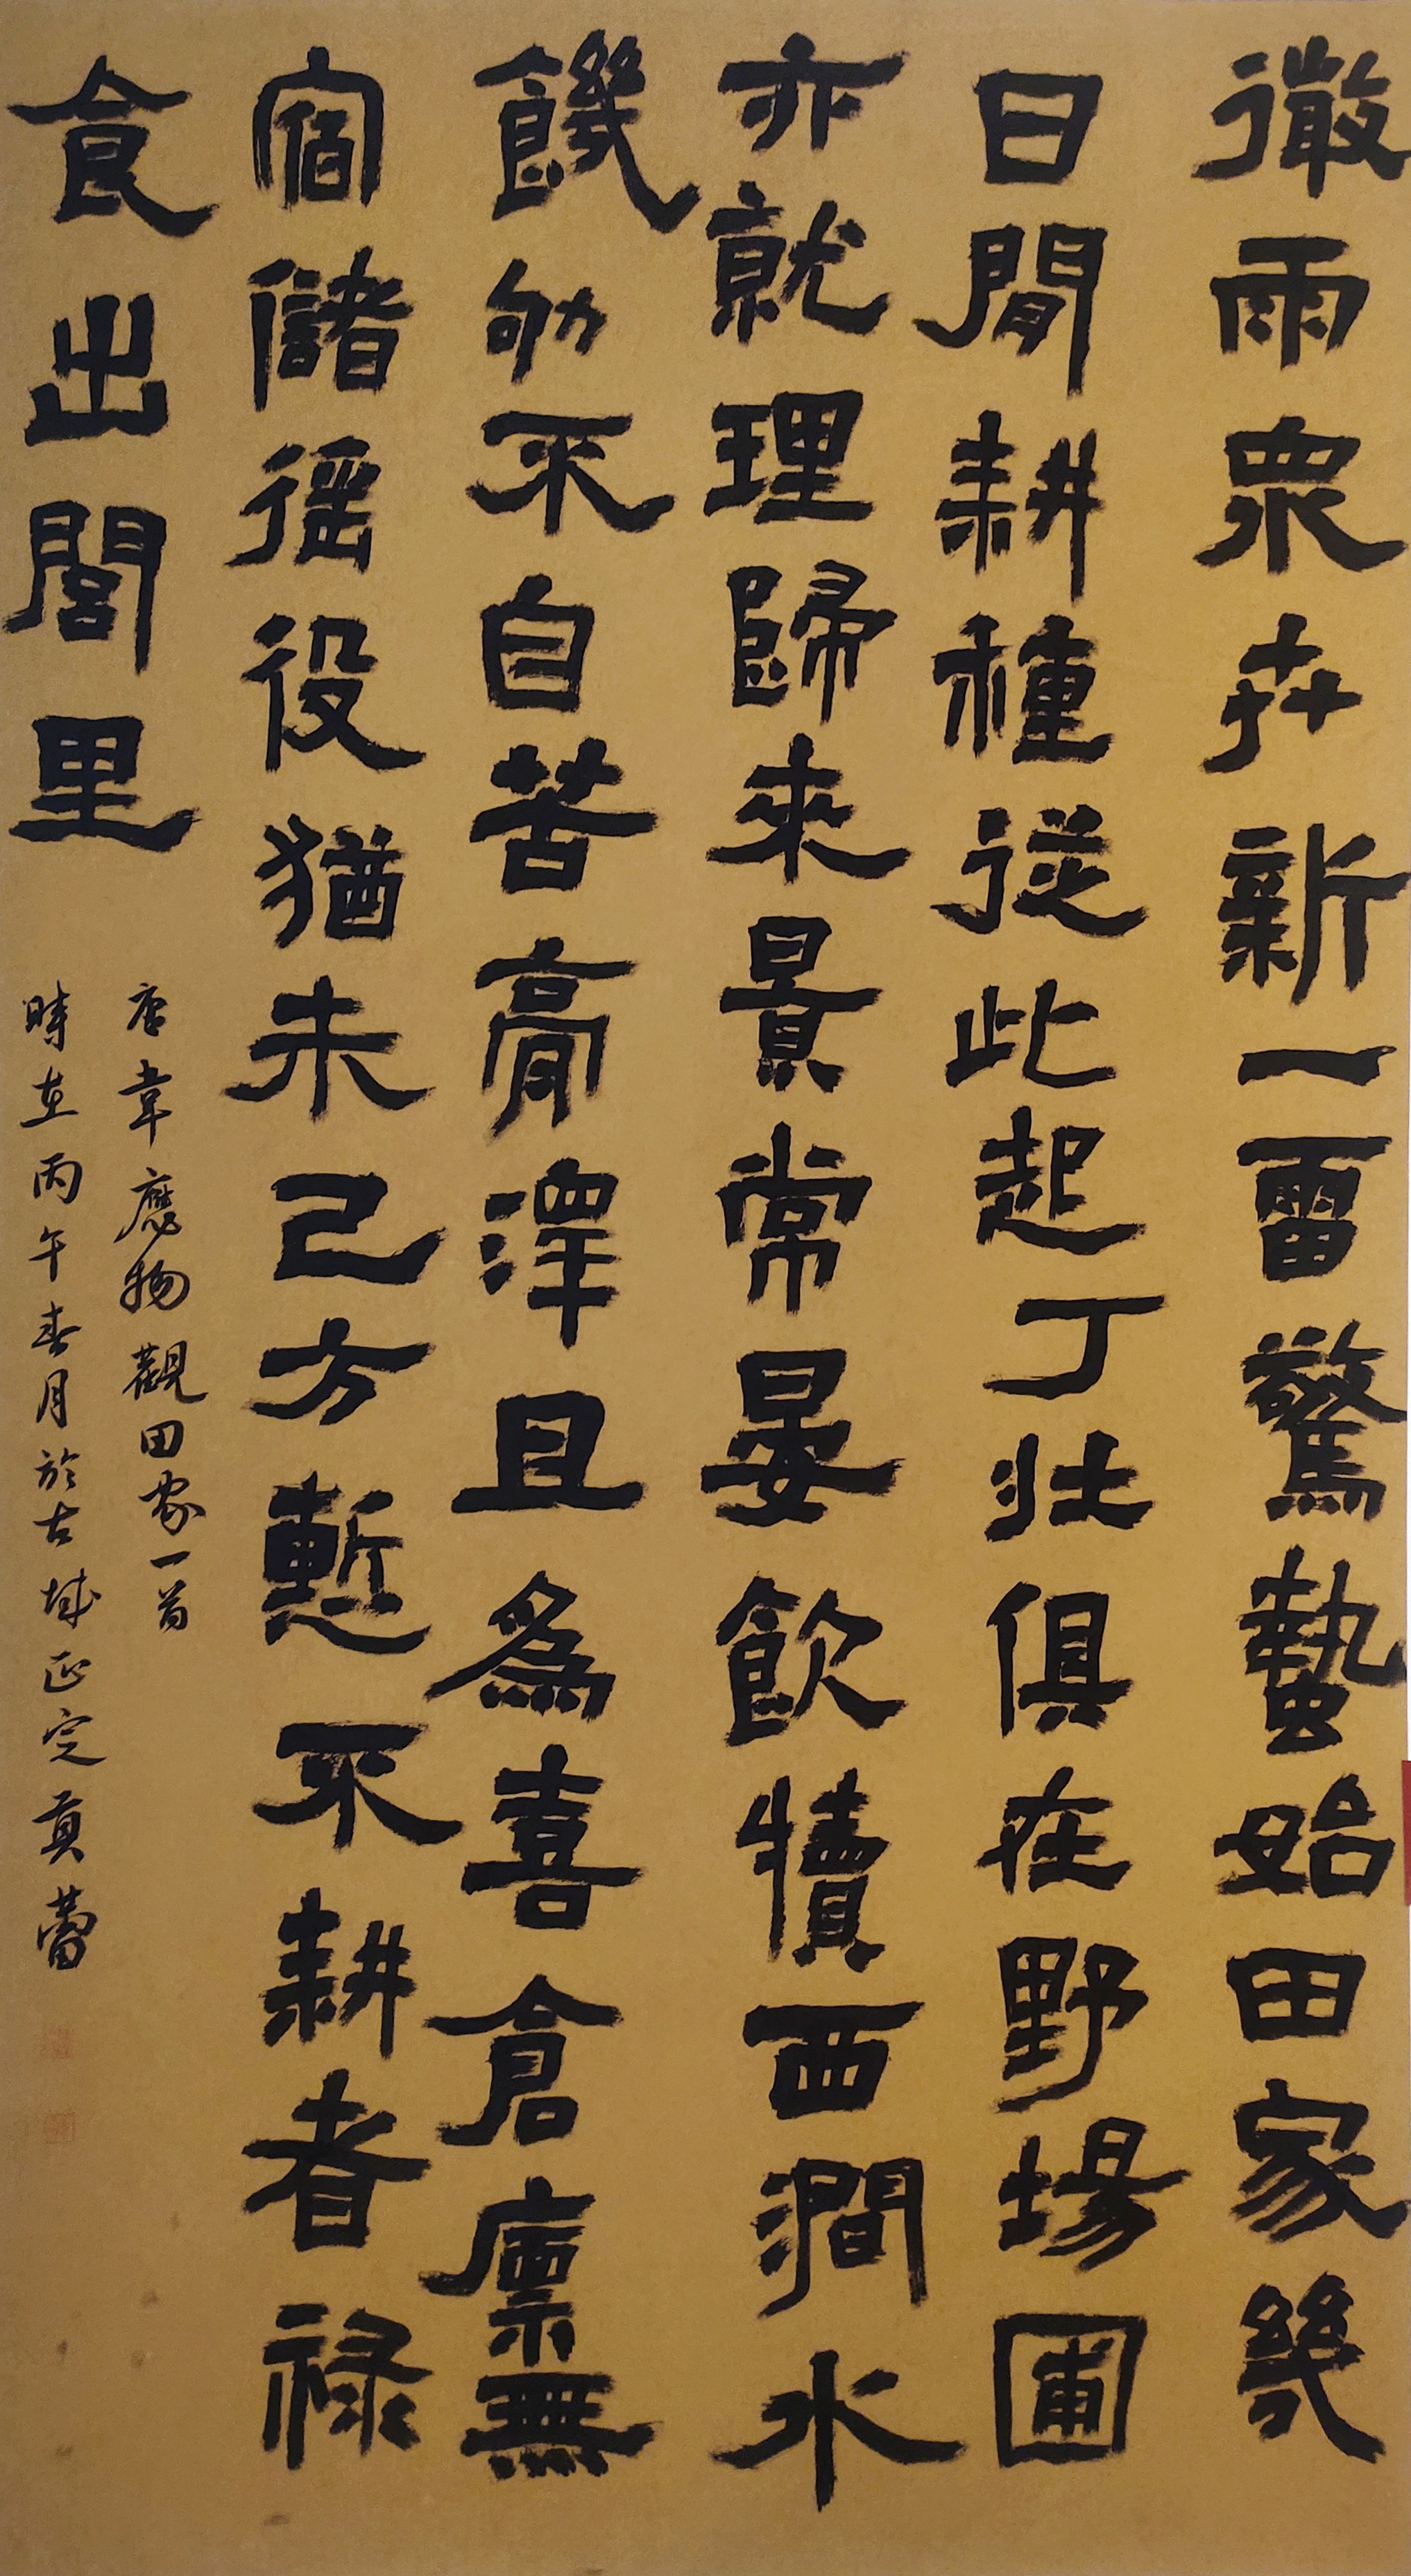 微雨眾卉新一雷驚蟄始田家幾
日閒耕種從此起丁壯俱在野場圃
亦就理歸來景常晏飲犢西澗水
饑劬不自苦膏澤且為喜倉廩無
宿儲徭役猶未已方慙不耕者祿
食出閭里
唐韋應物觀田家一首
時在丙午春月於古城正定真蕾